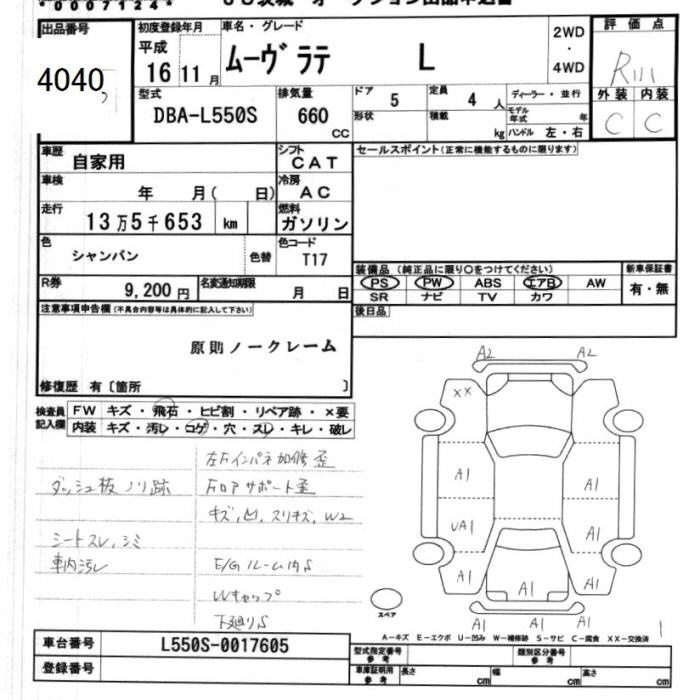 *00071244*
出品番号
初度登録年月
車名・グレード
評価点
平成
16 11月
ムーヴラテ L
2WD
・
4WD
R111
4040
外装 内装
C C
型式
DBA-L550S
排気量
660
CC
ドア
5
定員
4 人
ディーラー・並行
形状
積載
kg
モデル年式 年
ハンドル 左・右
車歴
自家用
シフト
CAT
セールスポイント(正常に機能するものに限ります)
車検
年 月( 日)
冷房
AC
走行
13万5千653 km
燃料
ガソリン
色
シャンパン
色替
色コード
T17
装備品(純正品に限り○をつけてください)
新車保証書
PS PW ABS エアB AW
有・無
SR ナビ TV カワ
R券
9,200円
名変通知期限
月 日
後日品
注意事項申告欄(不具合内容等は具体的に記入して下さい)
原則ノークレーム
修復歴 有〔箇所 〕
検査員
記入欄
FW キズ・飛石・ヒビ割・リペア跡・×要
内装 キズ・汚レ・コゲ・穴・スレ・キレ・破レ
左Fインパネ加修歪
ダッシュ板ノリ跡
Fロアサポート歪
キズ,凹,スリキズ,W2
シートスレ,シミ
車内汚レ
E/Gルーム内S
Wキャップ
下廻りS
A2 A2
XX
A1 A1
UA1 A1
A1 A1 A1
A1 A1
スペア
1
A-キズ E-エクボ U-凹み W-補修跡 S-サビ C-腐食 XX-交換済
車台番号
L550S-0017605
登録番号
型式指定番号
参考
類別区分番号
参考
車庫証明用
参考
長さ cm
幅 cm
高さ cm